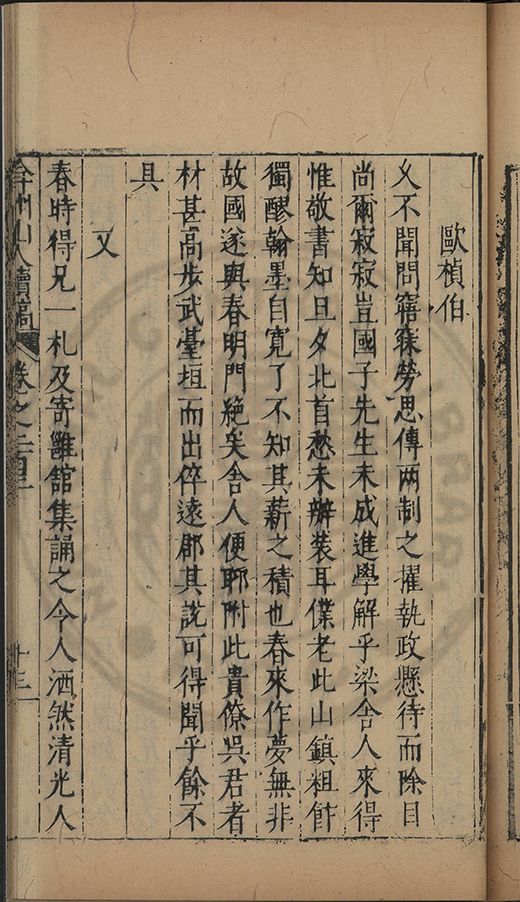 歐楨伯
乆不聞問寤寐勞思傳兩制之擢執政懸待而除目
尚爾寂寂豈國子先生未成進學解乎梁舍人來得
惟敬書知旦夕北首愁未辦裝耳僕老此山鎮粗飰
獨醪翰墨自寬了不知其薪之積也春來作夢無非
故國遂與春明門絕矣舍人便耶附此貴僚吳君者
材甚高步武臺垣而出倅遠郡其說可得聞乎餘不
具
又
春時得兄一札及寄雝舘集誦之令人洒然清光人
弇州山人續稿 卷之 十三